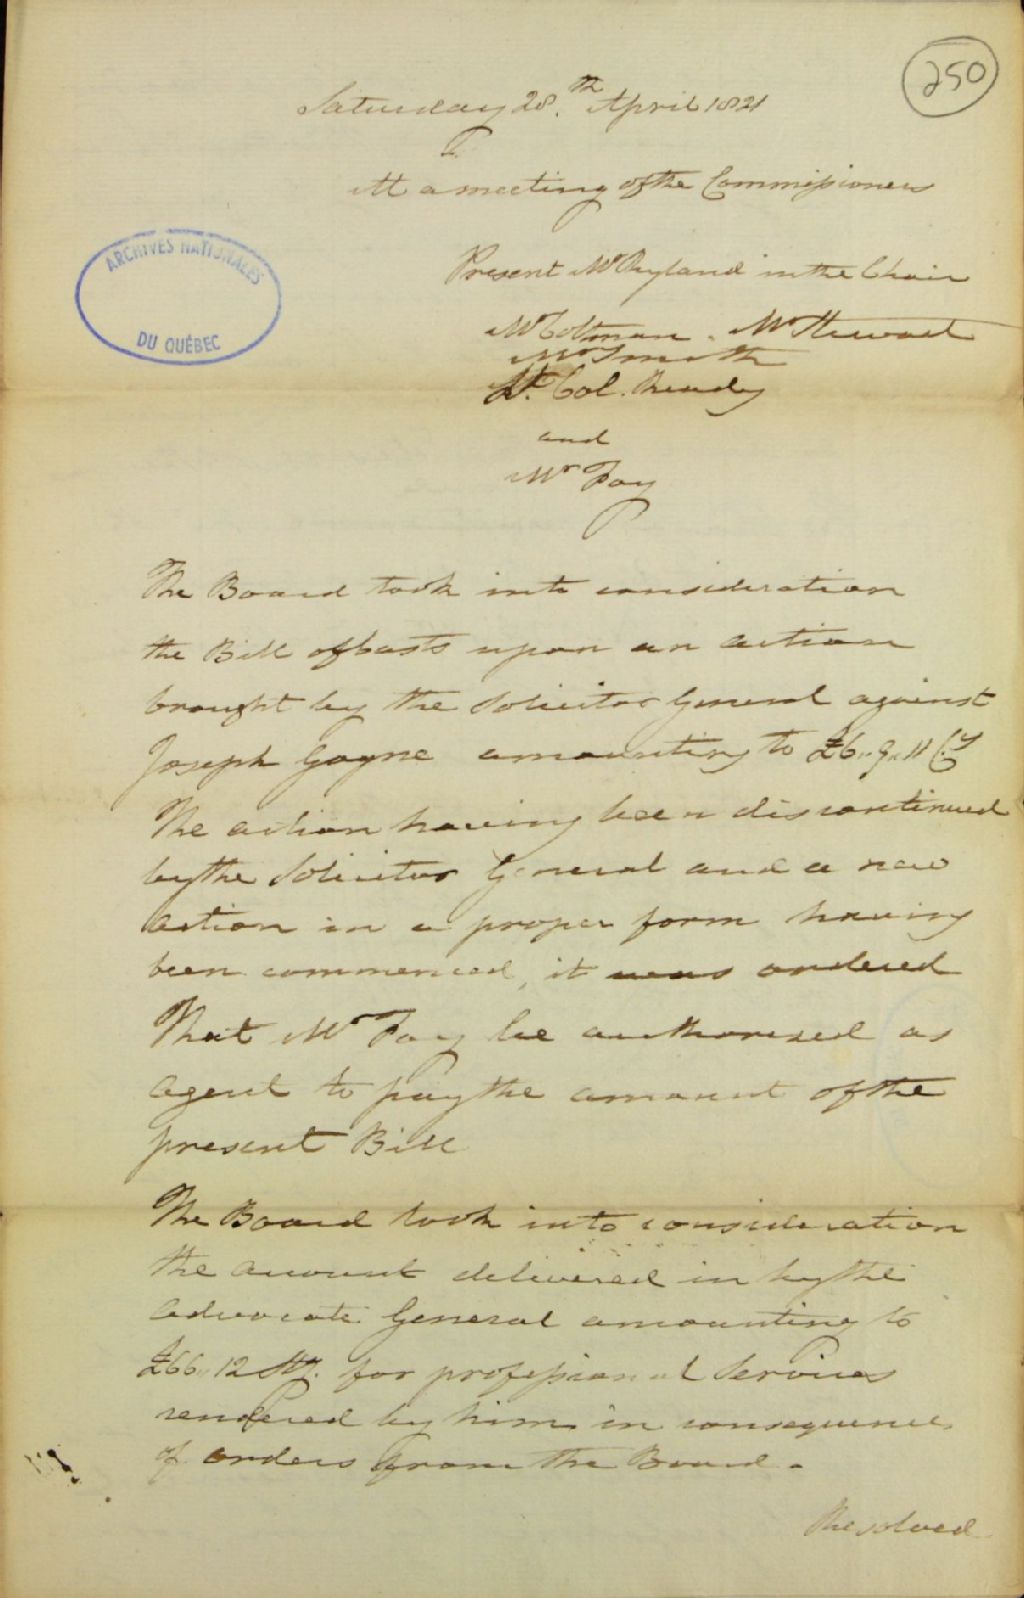 250
Saturday 28th April 1821
At a meeting of the Commissioners
ARCHIVES NATIONALES
DU QUÉBEC
Present Mr Ryland in the Chair
Mr Coltman. Mr Stewart
Mr Smith
Lt. Col. Ready
and
Mr Fay
The Board took into consideration
the Bill of Costs upon an action
brought by the Solicitor General against
Joseph Gagne amounting to £6..9..11 Cy
The action having been discontinued
by the Solicitor General and a new
action in a proper form having
been commenced, it was ordered
That Mr Fay be authorised as
agent to pay the amount of the
present Bill
The Board took into consideration
the account delivered in by the
Advocate General amounting to
£66..12 Stg. for professional Services
rendered by him in consequence
of orders from the Board.
Resolved